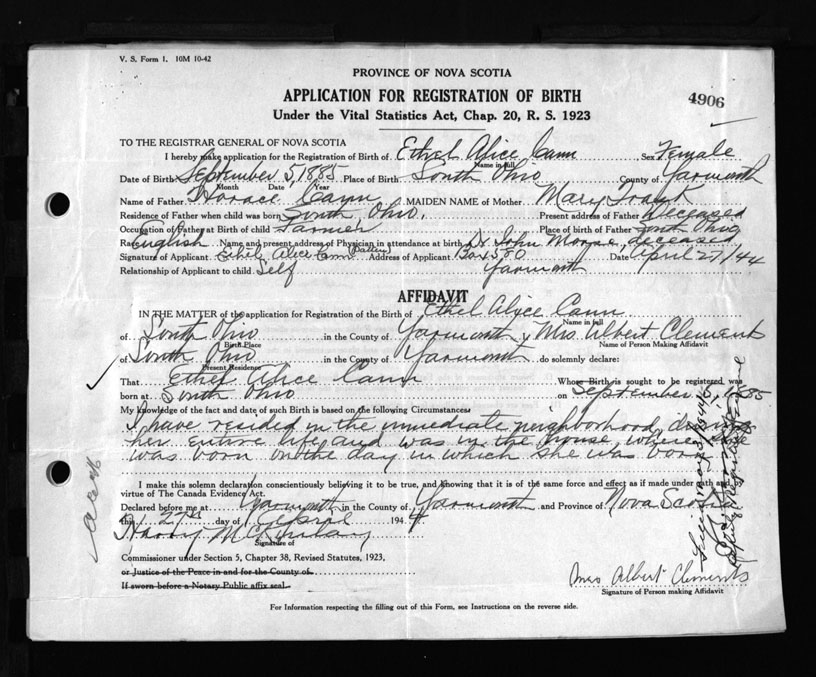 V. S. Form 1. 10M 10-42
PROVINCE OF NOVA SCOTIA
APPLICATION FOR REGISTRATION OF BIRTH
4906
Under the Vital Statistics Act, Chap. 20, R. S. 1923
TO THE REGISTRAR GENERAL OF NOVA SCOTIA
I hereby make application for the Registration of Birth of Ethel Alice Cann Sex Female
Name in full
Date of Birth September 5, 1885 Place of Birth South Ohio County of Yarmouth
Month Date Year
Name of Father Horace Cann MAIDEN NAME of Mother Mary
Residence of Father when child was born South Ohio. Present address of Father deceased
Occupation of Father at Birth of child Farmer Place of birth of Father South Ohio
Race English Name and present address of Physician in attendance at birth Dr John Moore, deceased
Signature of Applicant Ethel Alice Cann Address of Applicant Box 580 Date April 27/44
Relationship of Applicant to child Self Yarmouth
AFFIDAVIT
IN THE MATTER of the application for Registration of the Birth of Ethel Alice Cann
Name in full
of South Ohio in the County of Yarmouth Mrs Albert Clements
Birth Place Name of Person Making Affidavit
of South Ohio in the County of Yarmouth do solemnly declare:
Present Residence
That Ethel Alice Cann Whose Birth is sought to be registered was
born at South Ohio on September 5, 1885
My knowledge of the fact and date of such Birth is based on the following Circumstances:
I have resided in the immediate neighborhood during
her entire life and was in the house where she
was born on the day in which she was born
I make this solemn declaration conscientiously believing it to be true, and knowing that it is of the same force and effect as if made under oath and by
virtue of The Canada Evidence Act.
Declared before me at Yarmouth in the County of Yarmouth and Province of Nova Scotia
this 27th day of April 1944
Harry
Signature of
Commissioner under Section 5, Chapter 38, Revised Statutes, 1923,
or Justice of the Peace in and for the County of
If sworn before a Notary Public affix seal
Mrs Albert Clements
Signature of Person making Affidavit
For Information respecting the filling out of this Form, see Instructions on the reverse side.